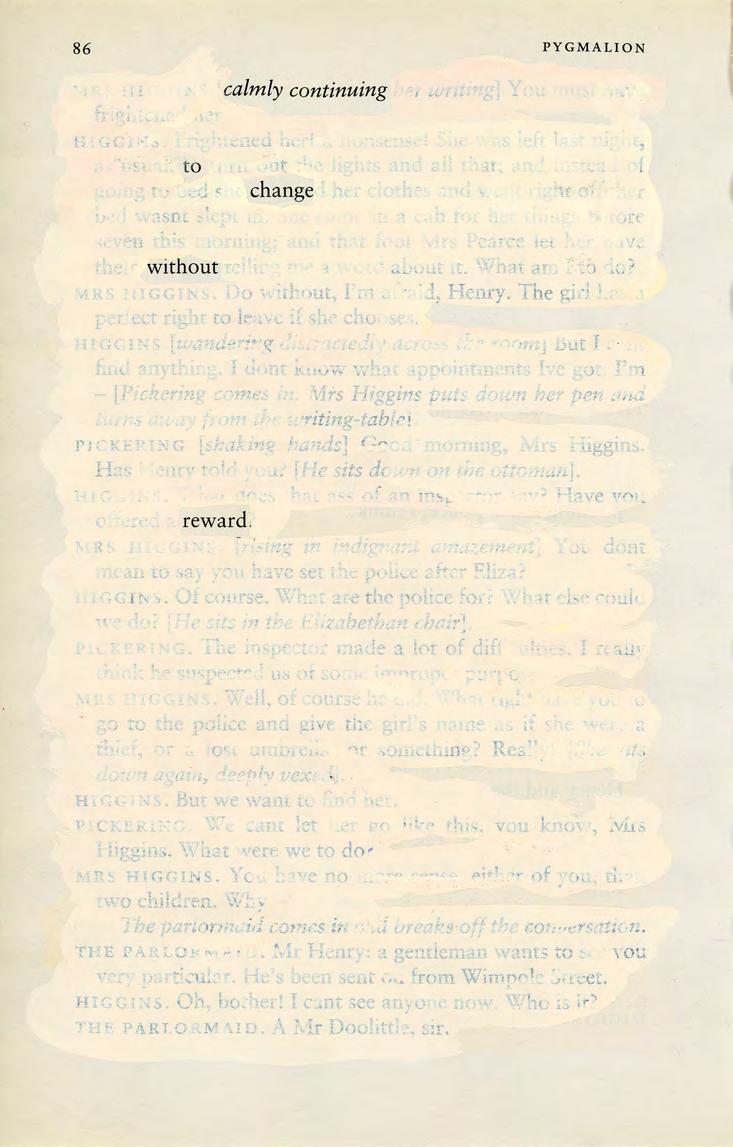 86 PYGMALION
MRS HIGGINS calmly continuing her writing] You must have
frightened her
HIGGINS. Frightened her! nonsense! She was left last night,
as usual, to turn out the lights and all that; and instead of
going to bed she change d her clothes and went right off her
bed wasnt slept in. She came in a cab for her things before
seven this morning; and that fool Mrs Pearce let her have
them without telling me a word about it. What am I to do?
MRS HIGGINS. Do without, I'm afraid, Henry. The girl has a
perfect right to leave if she chooses.
HIGGINS [wandering distractedly across the room] But I cant
find anything. I dont know what appointments Ive got. I'm
– [Pickering comes in. Mrs Higgins puts down her pen and
turns away from the writing-table].
PICKERING [shaking hands] Good morning, Mrs Higgins.
Has Henry told you? [He sits down on the ottoman].
HIGGINS. What does that ass of an inspector say? Have you
offered a reward?
MRS HIGGINS. [rising in indignant amazement] You dont
mean to say you have set the police after Eliza?
HIGGINS. Of course. What are the police for? What else could
we do? [He sits in the Elizabethan chair].
PICKERING. The inspector made a lot of difficulties. I really
think he suspected us of some improper purpose.
MRS HIGGINS. Well, of course he did. What right have you to
go to the police and give the girl's name as if she were a
thief, or a lost umbrella, or something? Really! [She sits
down again, deeply vexed].
HIGGINS. But we want to find her.
PICKERING. We cant let her go like this, you know, Mrs
Higgins. What were we to do?
MRS HIGGINS. You have no more sense, either of you, than
two children. Why
The parlormaid comes in and breaks off the conversation.
THE PARLORMAID. Mr Henry: a gentleman wants to see you
very particular. He's been sent on from Wimpole Street.
HIGGINS. Oh, bother! I cant see anyone now. Who is it?
THE PARLORMAID. A Mr Doolittle, sir.